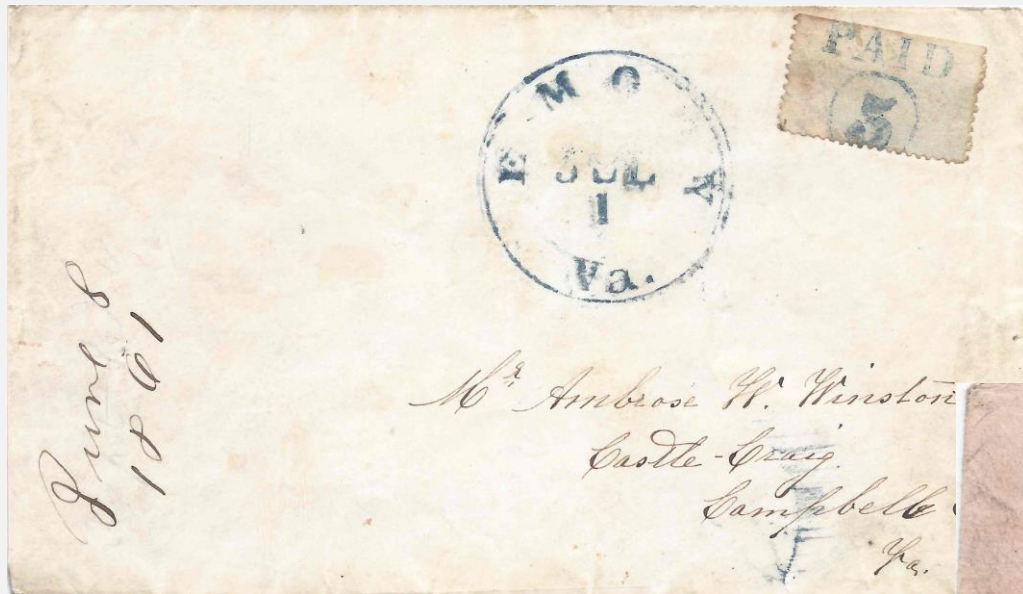 PAID
5
EMO
A
JUL
1
Va.
June 8
1861
Mr Ambrose W. Winston
Castle-Craig
Campbell
Va.